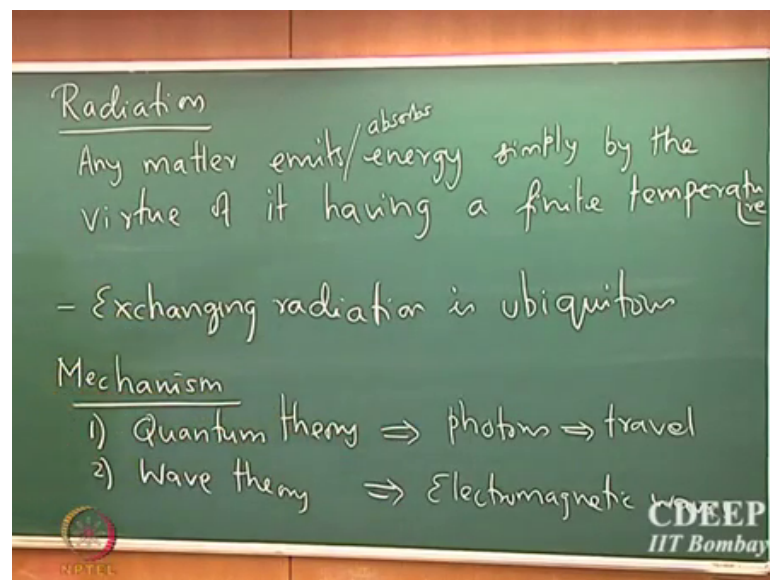 Radiation
absorbs
Any matter emits/energy simply by the
virtue of it having a finite temperature
- Exchanging radiation is ubiquitous
Mechanism
1) Quantum theory ⇒ photons ⇒ travel
2) Wave theory ⇒ Electromagnetic wave
CDEEP
IIT Bombay
NPTEL